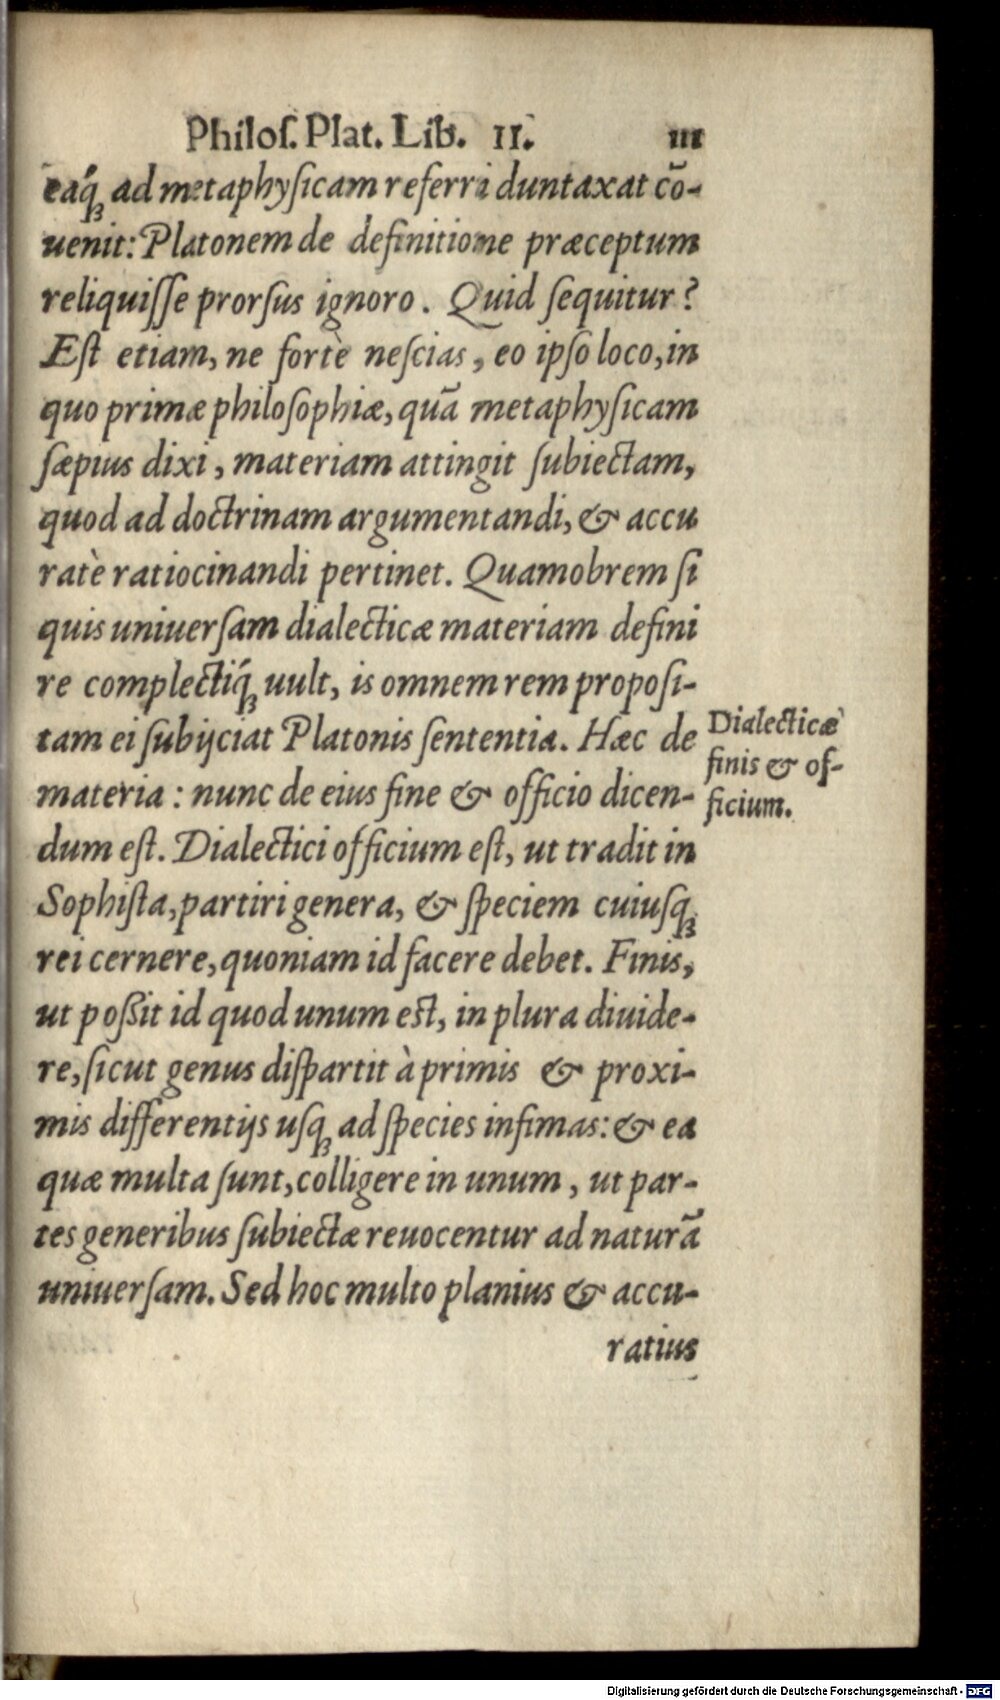 Philoſ. Plat. Lib. II. 111
eáq́ꝫ ad metaphyſicam referri duntaxat cō-
uenit: Platonem de definitione præceptum
reliquiſſe prorſus ignoro. Quid ſequitur?
Eſt etiam, ne fortè neſcias, eo ipſo loco, in
quo primæ philoſophiæ, quā metaphyſicam
ſæpius dixi, materiam attingit ſubiectam,
quod ad doctrinam argumentandi, & accu
ratè ratiocinandi pertinet. Quamobrem ſi
quis uniuerſam dialecticæ materiam defini
re complectiq́ꝫ uult, is omnem rem propoſi-
tam ei ſubijciat Platonis ſententia. Hæc de
materia: nunc de eius fine & officio dicen-
dum eſt. Dialectici officium eſt, ut tradit in
Sophiſta, partiri genera, & ſpeciem cuiuſqꝫ
rei cernere, quoniam id facere debet. Finis,
ut poßit id quod unum eſt, in plura diuide-
re, ſicut genus diſpartit à primis & proxi-
mis differentijs uſqꝫ ad ſpecies infimas: & ea
quæ multa ſunt, colligere in unum, ut par-
tes generibus ſubiectæ reuocentur ad naturā
uniuerſam. Sed hoc multo planius & accu-
ratius
Dialecticæ
finis & of-
ficium.
Digitalisierung gefördert durch die Deutsche Forschungsgemeinschaft - DFG